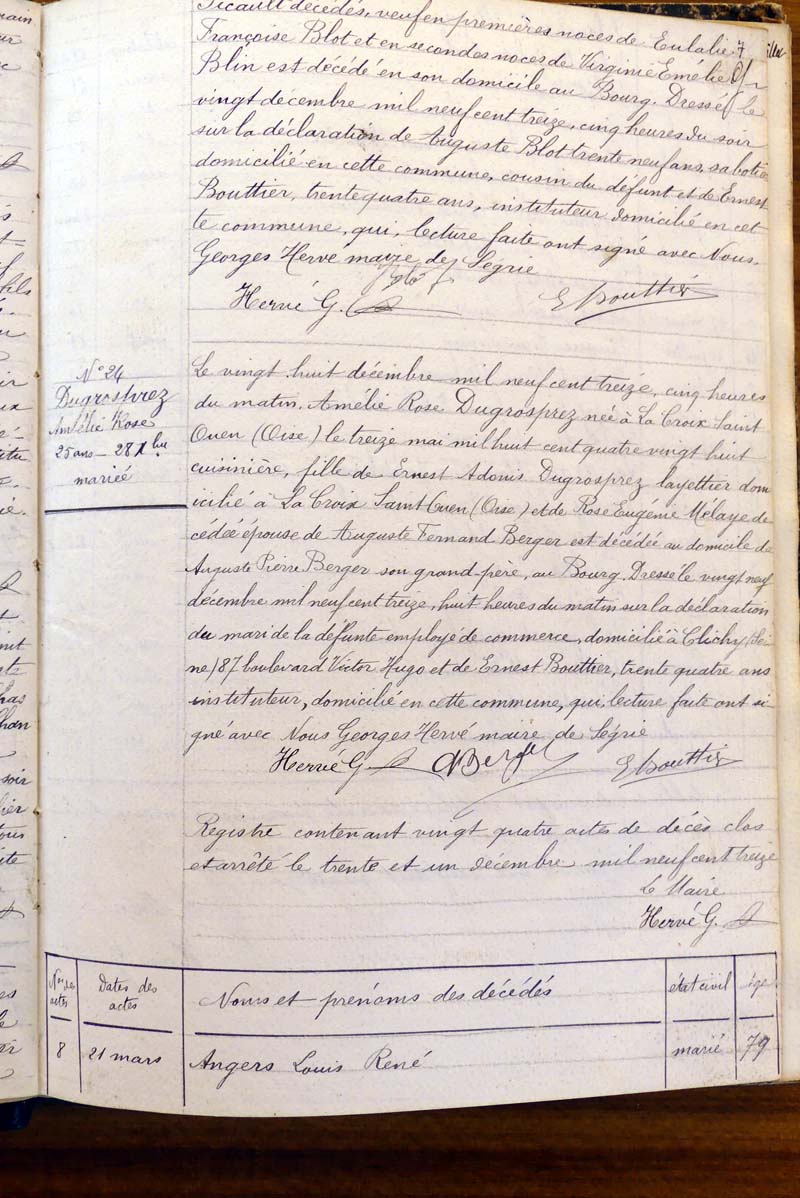 décédés, veuf en premières noces de Eulalie
Françoise Blot et en secondes noces de Virginie Emélie
Blin est décédé en son domicile au Bourg. Dressé le
vingt décembre mil neuf cent treize, cinq heures du soir
sur la déclaration de Auguste Blot trente neuf ans, sabotier
domicilié en cette commune, cousin du défunt et de Ernest
Bouttier, trente quatre ans, instituteur domicilié en cet
te commune, qui, lecture faite ont signé avec Nous.
Georges Hervé maire de Ségrie
Blot
Hervé G. E Bouttier
N° 24
Dugrosprez
Amélie Rose
25 ans - 28 Xbre
mariée
Le vingt huit décembre mil neuf cent treize, cinq heures
du matin, Amélie Rose Dugrosprez née à La Croix Saint
Ouen (Oise) le treize mai mil huit cent quatre vingt huit
cuisinière, fille de Ernest Adonis Dugrosprez layettier dom
icilié à La Croix Saint Ouen (Oise) et de Rose Eugénie Mélaye dé
cédée épouse de Auguste Fernand Berger est décédée au domicile de
Auguste Pierre Berger son grand père, au Bourg. Dressé le vingt neuf
décembre mil neuf cent treize, huit heures du matin sur la déclaration
du mari de la défunte employé de commerce, domicilié à Clichy (Sei
ne) 87 boulevard Victor Hugo et de Ernest Bouttier, trente quatre ans
instituteur, domicilié en cette commune, qui, lecture faite ont si
gné avec Nous Georges Hervé maire de Ségrie
Hervé G. ABerger E Bouttier
Registre contenant vingt quatre actes de décès clos
et arrêté le trente et un décembre mil neuf cent treize
Le Maire
Hervé G.
Nos des actes Dates des actes Noms et prénoms des décédés état civil âge
8 21 mars Angers Louis René marié 79